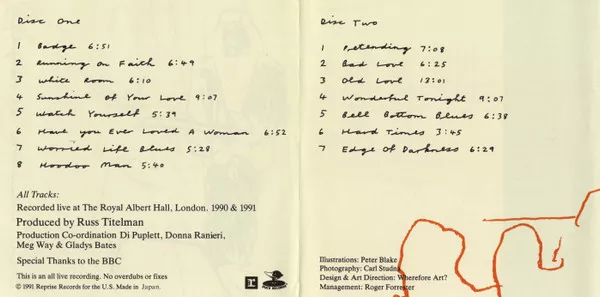 Disc One
1 Badge 6:51
2 Running on Faith 6:49
3 White Room 6:10
4 Sunshine of Your Love 9:07
5 Watch Yourself 5:39
6 Have you Ever Loved A Woman 6:52
7 Worried Life Blues 5:28
8 Hoodoo Man 5:40
All Tracks:
Recorded live at The Royal Albert Hall, London. 1990 & 1991
Produced by Russ Titelman
Production Co-ordination Di Puplett, Donna Ranieri,
Meg Way & Gladys Bates
Special Thanks to the BBC
This is an all live recording. No overdubs or fixes
© 1991 Reprise Records for the U.S. Made in Japan.
Disc Two
1 Pretending 7:08
2 Bad Love 6:25
3 Old Love 13:01
4 Wonderful Tonight 9:07
5 Bell Bottom Blues 6:38
6 Hard Times 3:45
7 Edge of Darkness 6:29
Illustrations: Peter Blake
Photography: Carl Studna
Design & Art Direction: Wherefore Art?
Management: Roger Forrester